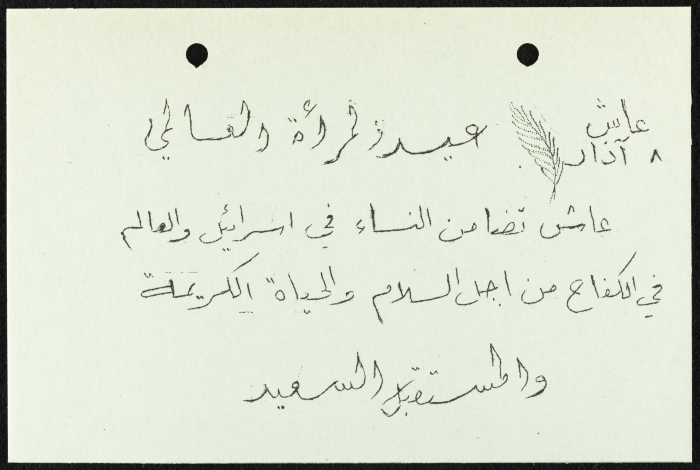 عاش
٨ آذار عيد المرأة العالمي
عاش تضامن النساء في اسرائيل والعالم
في الكفاح من اجل السلام والحياة الكريمة
والمستقبل السعيد